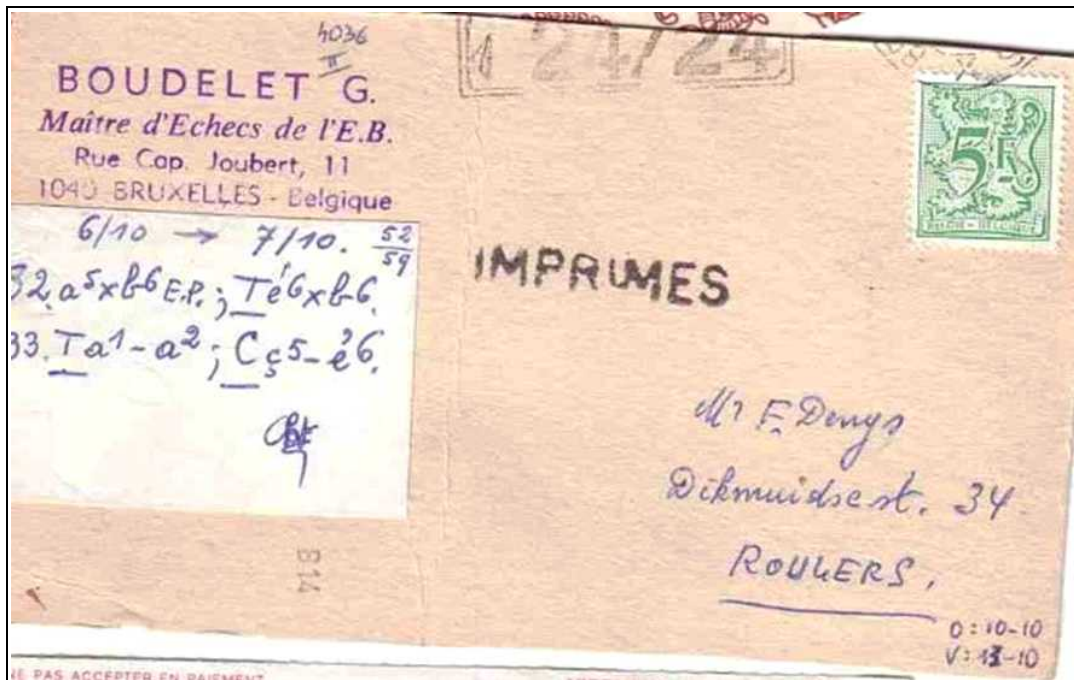 4036
II
BOUDELET G.
Maître d'Echecs de l'E.B.
Rue Cap. Joubert, 11
1040 BRUXELLES - Belgique
6/10 → 7/10. 52/59
32. a5xb6 E.P.; Té6xb6.
33. Ta1-a2; Cç5-é6.
1 24/24
5F
BELGIE - BELGIQUE
IMPRIMES
Mr F. Denys
Dikmuidsest. 34
ROULERS,
O: 10-10
V: 13-10
814
NE PAS ACCEPTER EN PAIEMENT